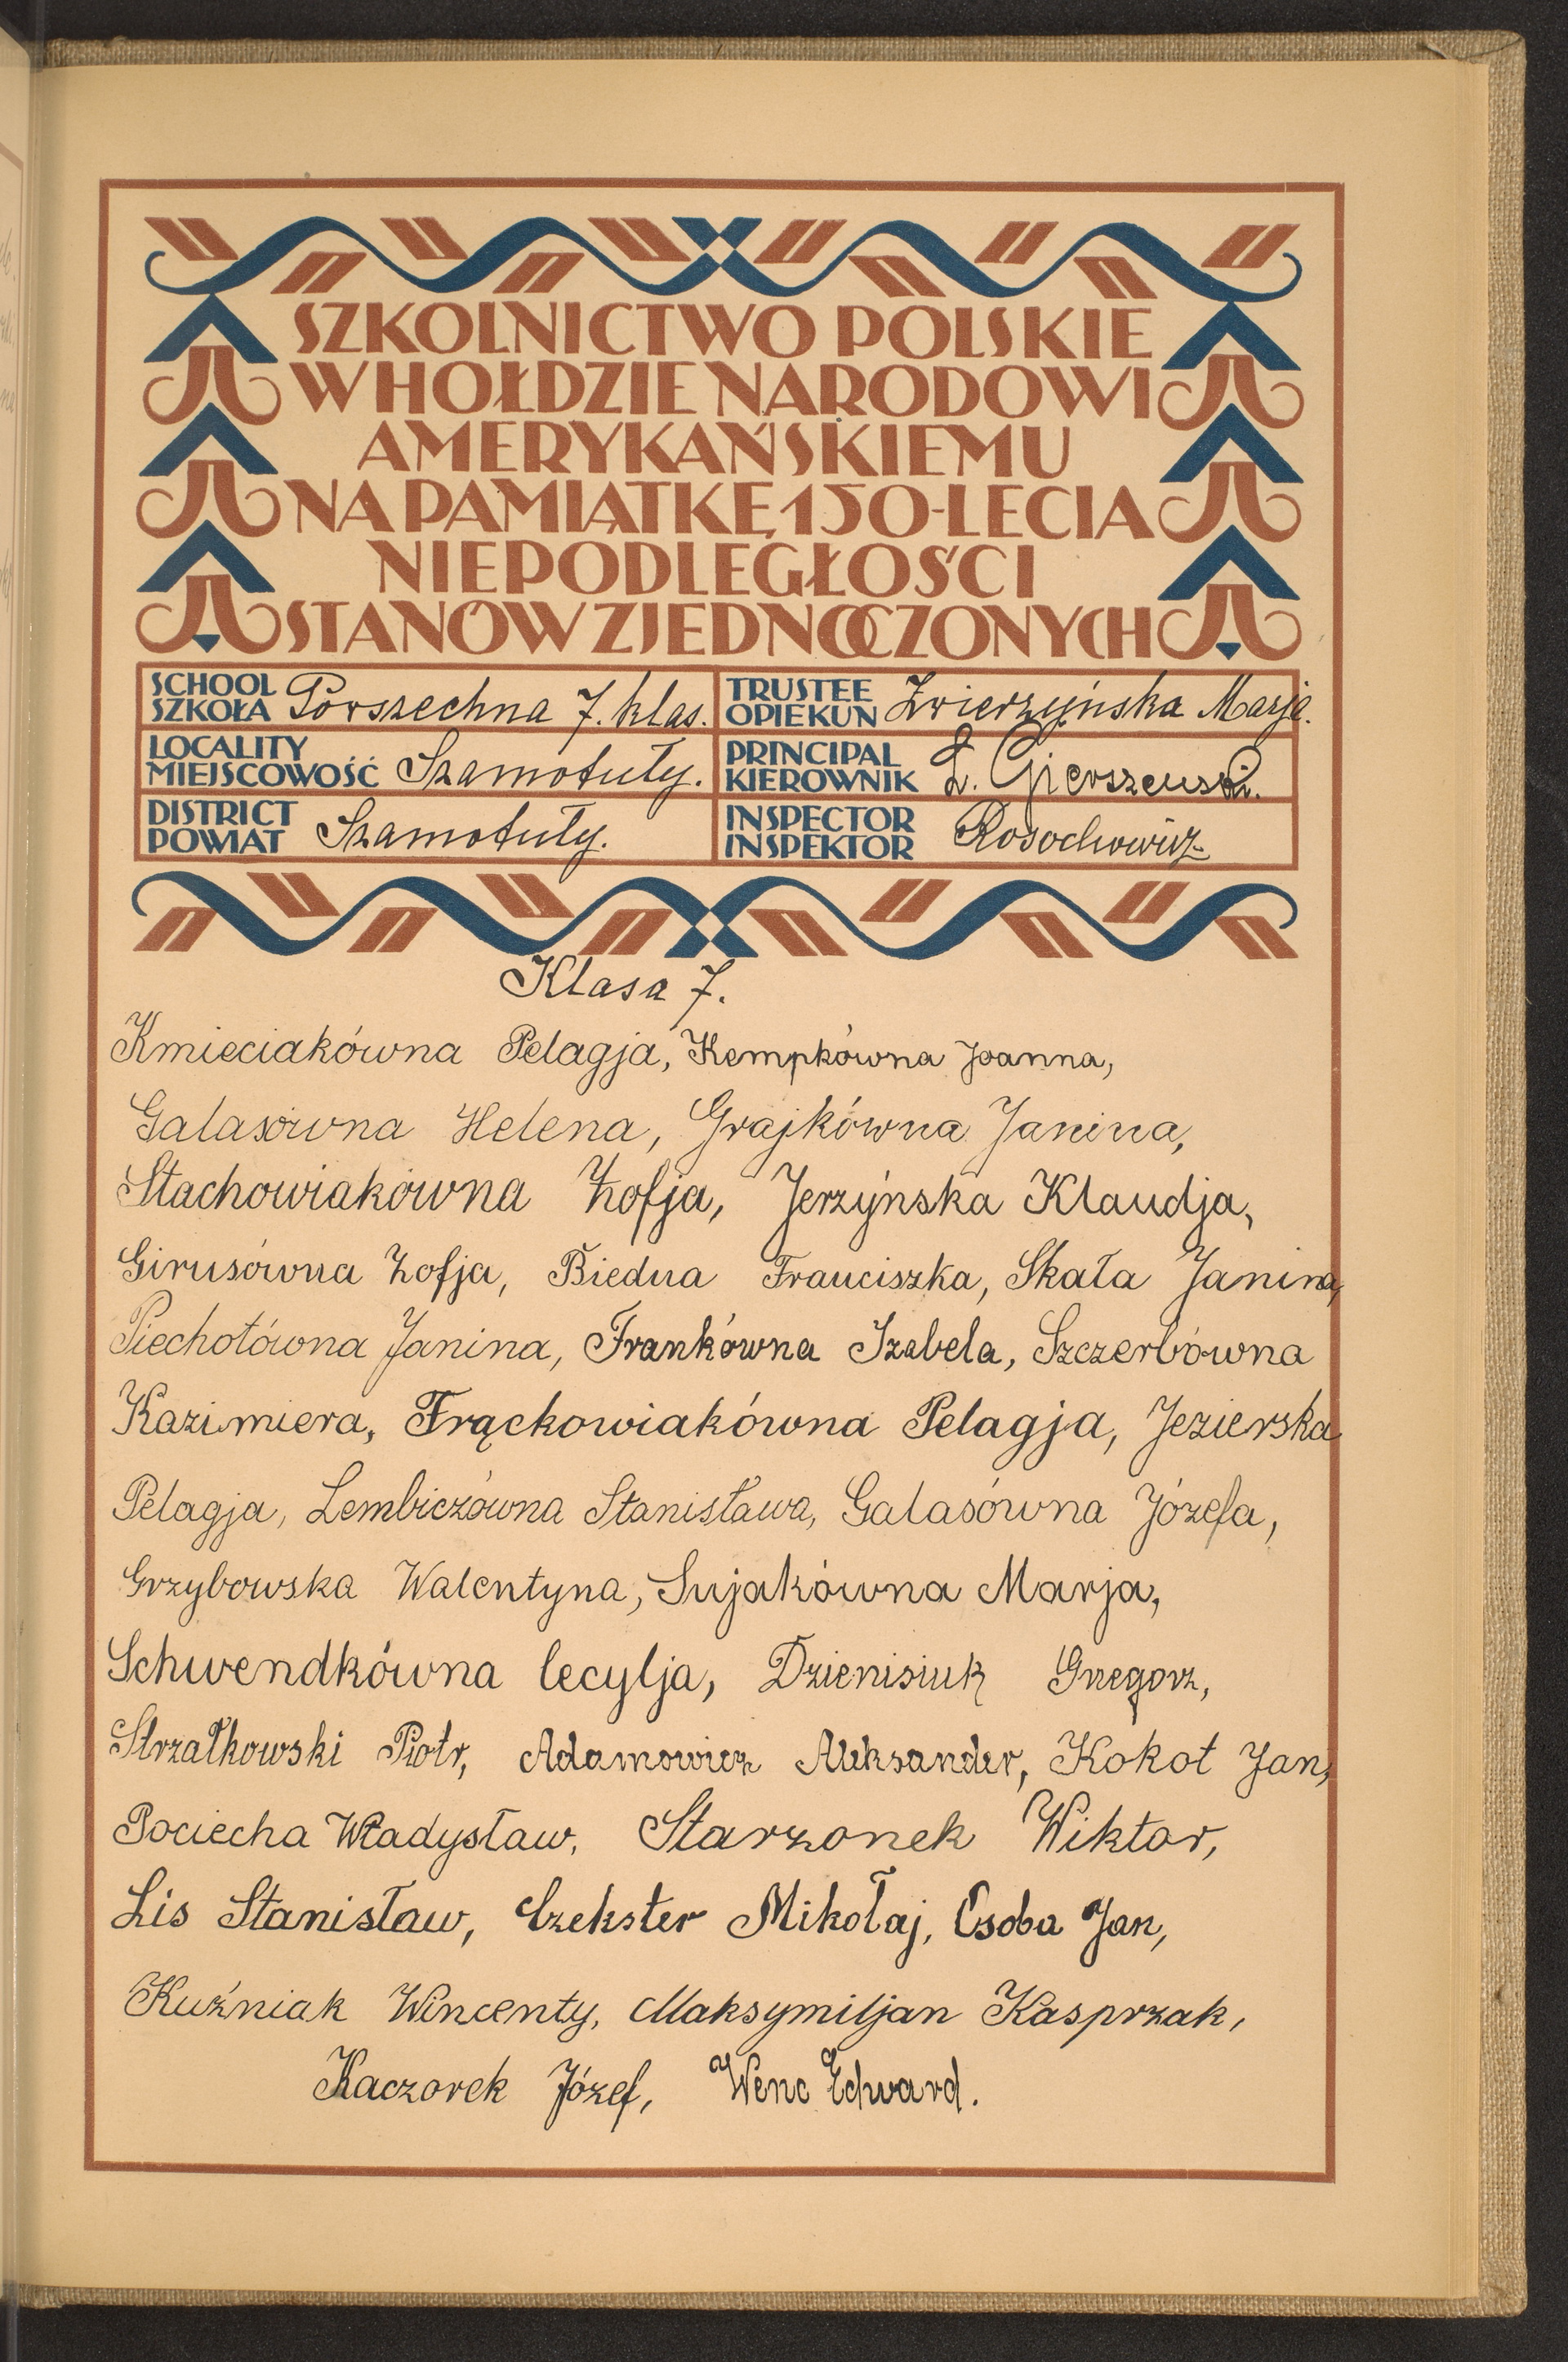 SZKOLNICTWO POLSKIE
W HOŁDZIE NARODOWI
AMERYKAŃSKIEMU
NA PAMIĄTKĘ 150-LECIA
NIEPODLEGŁOŚCI
STANÓW ZJEDNOCZONYCH
SCHOOL
SZKOŁA Powszechna 7. klas.
TRUSTEE
OPIEKUN Zwierzyńska Marja.
LOCALITY
MIEJSCOWOŚĆ Szamotuły.
PRINCIPAL
KIEROWNIK L. Gierszewski.
DISTRICT
POWIAT Szamotuły.
INSPECTOR
INSPEKTOR Rosochowicz
Klasa 7.
Kmieciakówna Pelagja, Kempkówna Joanna,
Galasówna Helena, Grajkówna Janina,
Stachowiakówna Zofja, Jerzyńska Klaudja,
Girusówna Zofja, Biedna Franciszka, Skała Janina,
Piechotówna Janina, Frankówna Izabela, Szczerbówna
Kazimiera, Frąckowiakówna Pelagja, Jezierska
Pelagja, Lembiczówna Stanisława, Galasówna Józefa,
Grzybowska Walentyna, Sujakówna Marja,
Schwendkówna Cecylja, Dzienisiuk Grzegorz,
Strzałkowski Piotr, Adamowicz Aleksander, Kokot Jan,
Pociecha Władysław, Starzonek Wiktor,
Lis Stanisław, Czekster Mikołaj, Osoba Jan,
Kuźniak Wincenty, Maksymiljan Kasprzak,
Kaczorek Józef, Wenc Edward.